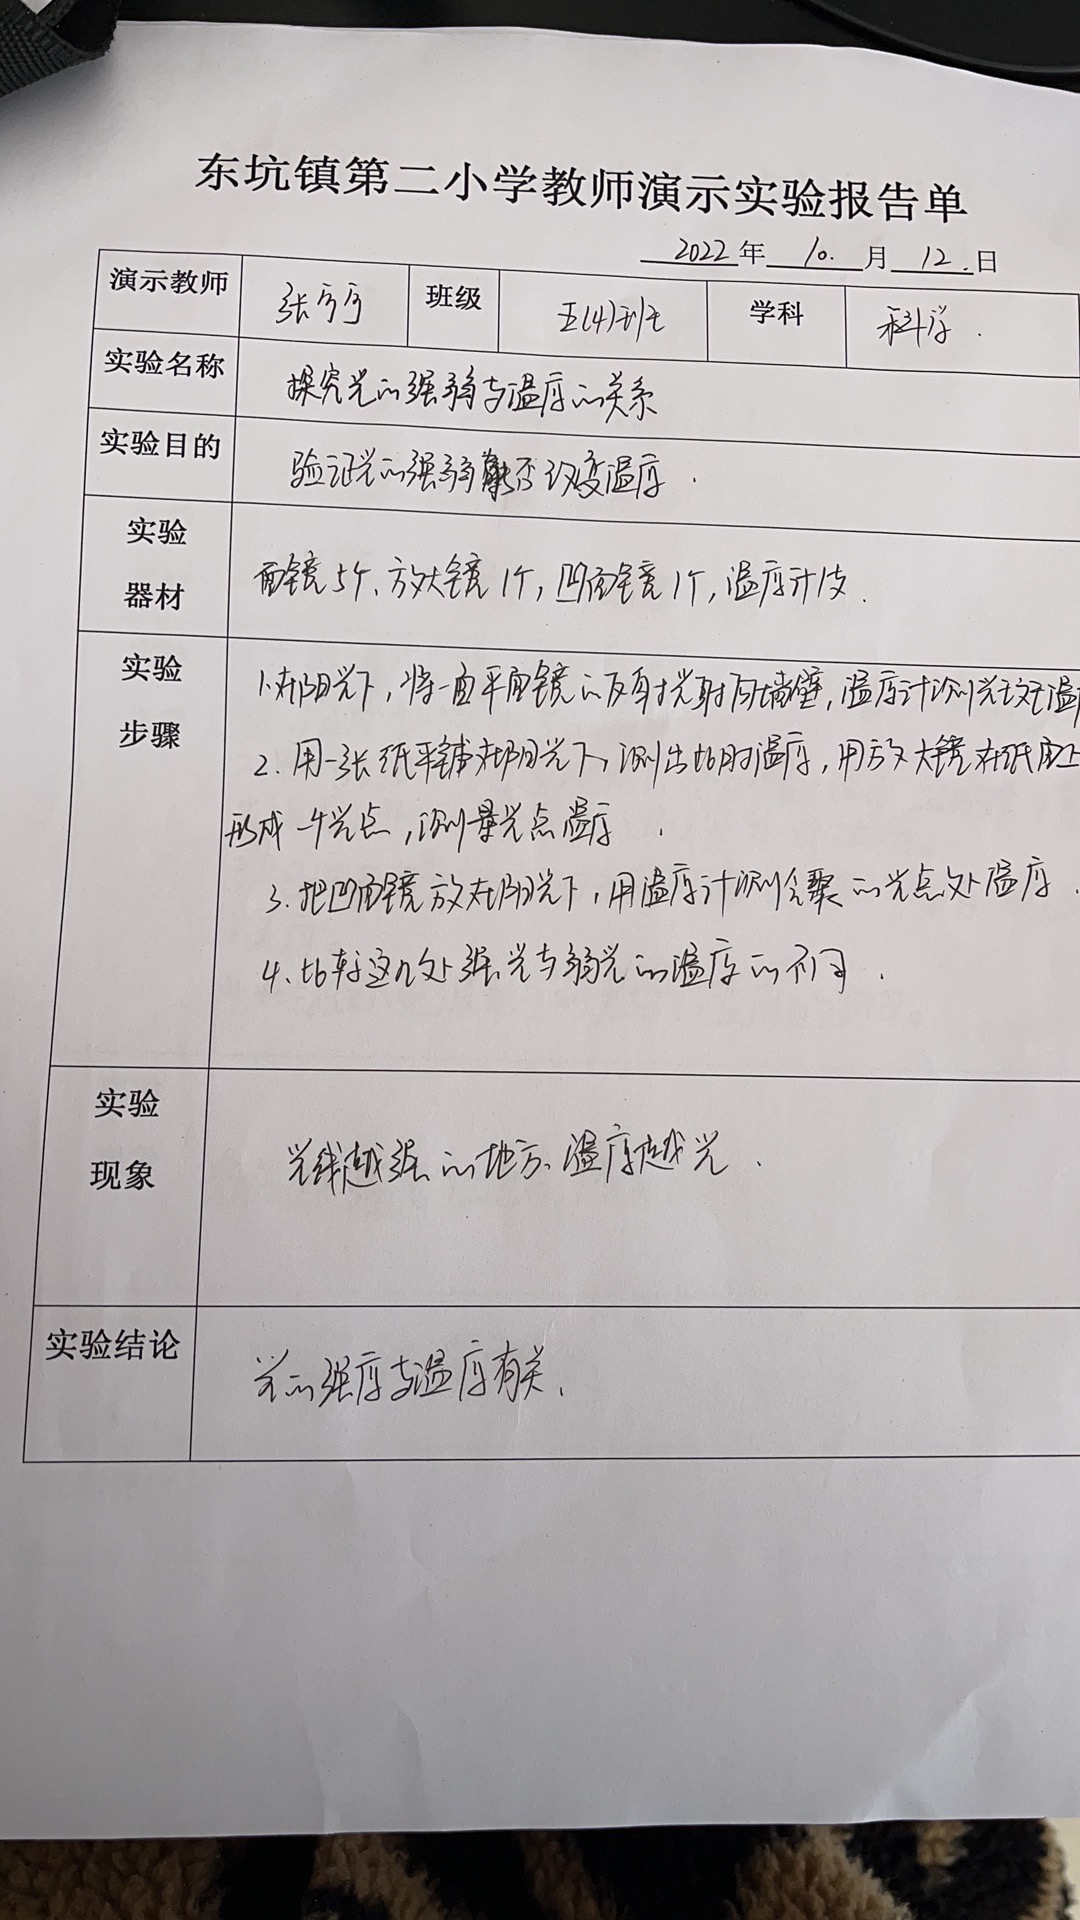 东坑镇第二小学教师演示实验报告单
2022年 10. 月 12. 日
演示教师 张 班级 五(4)班 学科 科学.
实验名称 探究光的强弱与温度的关系
实验目的 验证光的强弱能否改变温度.
实验
器材
面镜5个、放大镜1个,凹面镜1个,温度计1支.
实验
步骤
1.在阳光下,将一面平面镜的反射光射向墙壁,温度计测光
2.用一张纸平铺在阳光下,测出此时温度,用放大镜在纸面上
形成一个光点,测量光点温度.
3.把凹面镜放在阳光下,用温度计测会聚的光点处温度.
4.比较这几处强光与弱光的温度的不同.
实验
现象
光线越强的地方、温度越光.
实验结论 光的强度与温度有关.